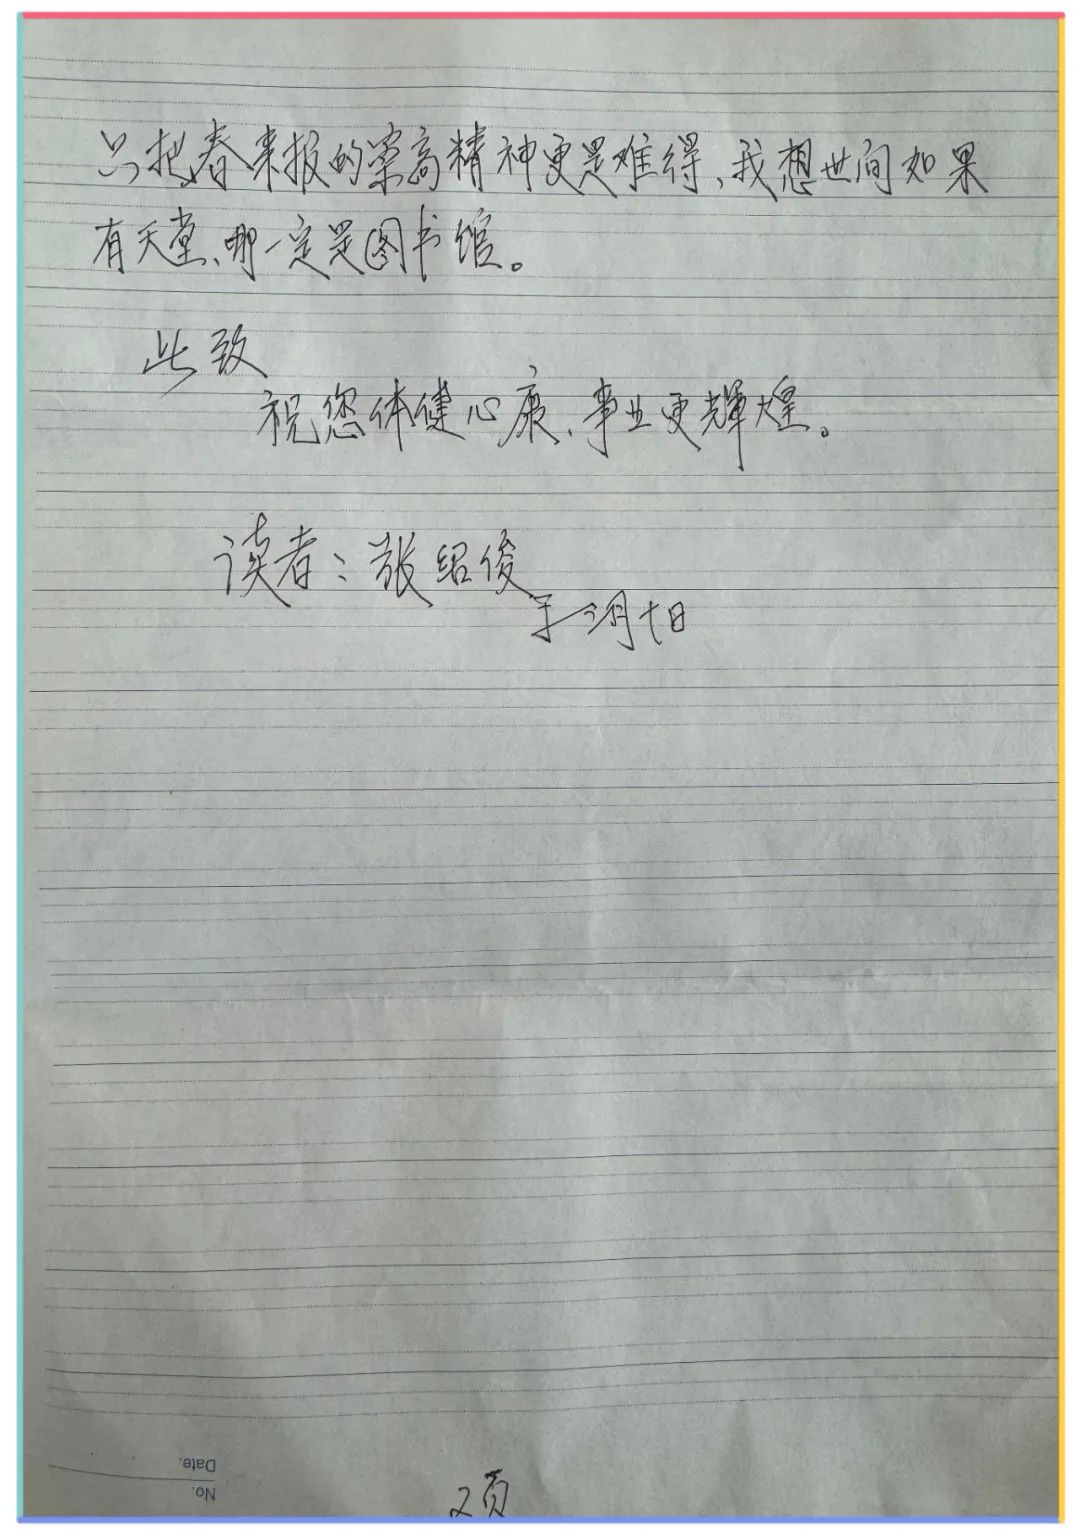 只把春来报的崇高精神更是难得、我想世间如果
有天堂、哪一定是图书馆。
此致
祝您体健心康、事业更辉煌。
读者：张绍俊
于 三月十日
2页
Date.
No.